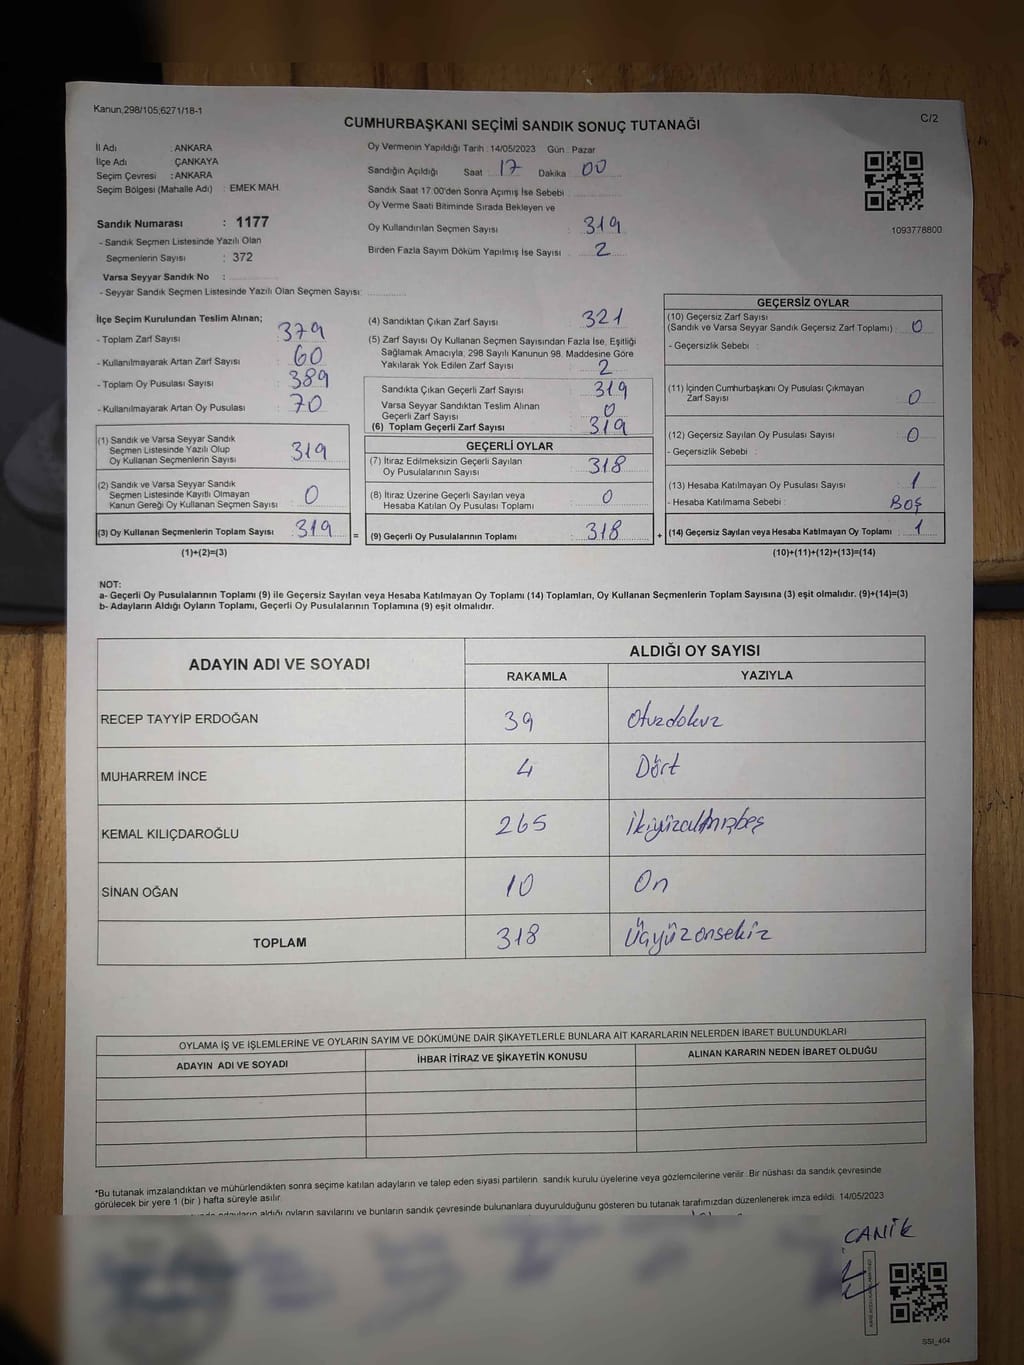 Kanun,298/105;6271/18-1
C/2
CUMHURBAŞKANI SEÇİMİ SANDIK SONUÇ TUTANAĞI
İl Adı : ANKARA
İlçe Adı : ÇANKAYA
Seçim Çevresi : ANKARA
Seçim Bölgesi (Mahalle Adı) : EMEK MAH.
Sandık Numarası : 1177
- Sandık Seçmen Listesinde Yazılı Olan
Seçmenlerin Sayısı : 372
Varsa Seyyar Sandık No :
- Seyyar Sandık Seçmen Listesinde Yazılı Olan Seçmen Sayısı:
Oy Vermenin Yapıldığı Tarih : 14/05/2023 Gün : Pazar
Sandığın Açıldığı Saat 17 Dakika 00
Sandık Saat 17:00'den Sonra Açımış İse Sebebi
Oy Verme Saati Bitiminde Sırada Bekleyen ve
Oy Kullandırılan Seçmen Sayısı 319
Birden Fazla Sayım Döküm Yapılmış İse Sayısı 2
1093778800
İlçe Seçim Kurulundan Teslim Alınan;
- Toplam Zarf Sayısı 379
- Kullanılmayarak Artan Zarf Sayısı 60
- Toplam Oy Pusulası Sayısı 389
- Kullanılmayarak Artan Oy Pusulası 70
(1) Sandık ve Varsa Seyyar Sandık
Seçmen Listesinde Yazılı Olup
Oy Kullanan Seçmenlerin Sayısı 319
(2) Sandık ve Varsa Seyyar Sandık
Seçmen Listesinde Kayıtlı Olmayan
Kanun Gereği Oy Kullanan Seçmen Sayısı 0
(3) Oy Kullanan Seçmenlerin Toplam Sayısı 319
(1)+(2)=(3)
(4) Sandıktan Çıkan Zarf Sayısı 321
(5) Zarf Sayısı Oy Kullanan Seçmen Sayısından Fazla İse, Eşitliği
Sağlamak Amacıyla, 298 Sayılı Kanunun 98. Maddesine Göre
Yakılarak Yok Edilen Zarf Sayısı 2
Sandıkta Çıkan Geçerli Zarf Sayısı 319
Varsa Seyyar Sandıktan Teslim Alınan
Geçerli Zarf Sayısı 0
(6) Toplam Geçerli Zarf Sayısı 319
GEÇERLİ OYLAR
(7) İtiraz Edilmeksizin Geçerli Sayılan
Oy Pusulalarının Sayısı 318
(8) İtiraz Üzerine Geçerli Sayılan veya
Hesaba Katılan Oy Pusulası Toplamı 0
= (9) Geçerli Oy Pusulalarının Toplamı 318
GEÇERSİZ OYLAR
(10) Geçersiz Zarf Sayısı
(Sandık ve Varsa Seyyar Sandık Geçersiz Zarf Toplamı) : 0
- Geçersizlik Sebebi :
(11) İçinden Cumhurbaşkanı Oy Pusulası Çıkmayan
Zarf Sayısı 0
(12) Geçersiz Sayılan Oy Pusulası Sayısı 0
- Geçersizlik Sebebi :
(13) Hesaba Katılmayan Oy Pusulası Sayısı 1
- Hesaba Katılmama Sebebi : BOŞ
+ (14) Geçersiz Sayılan veya Hesaba Katılmayan Oy Toplamı 1
(10)+(11)+(12)+(13)=(14)
NOT:
a- Geçerli Oy Pusulalarının Toplamı (9) ile Geçersiz Sayılan veya Hesaba Katılmayan Oy Toplamı (14) Toplamları, Oy Kullanan Seçmenlerin Toplam Sayısına (3) eşit olmalıdır. (9)+(14)=(3)
b- Adayların Aldığı Oyların Toplamı, Geçerli Oy Pusulalarının Toplamına (9) eşit olmalıdır.
ADAYIN ADI VE SOYADI
ALDIĞI OY SAYISI
RAKAMLA YAZIYLA
RECEP TAYYİP ERDOĞAN 39 Otuzdokuz
MUHARREM İNCE 4 Dört
KEMAL KILIÇDAROĞLU 265 İkiyüzaltmışbeş
SİNAN OĞAN 10 On
TOPLAM 318 Üçyüzonsekiz
OYLAMA İŞ VE İŞLEMLERİNE VE OYLARIN SAYIM VE DÖKÜMÜNE DAİR ŞİKAYETLERLE BUNLARA AİT KARARLARIN NELERDEN İBARET BULUNDUKLARI
ADAYIN ADI VE SOYADI İHBAR İTİRAZ VE ŞİKAYETİN KONUSU ALINAN KARARIN NEDEN İBARET OLDUĞU
*Bu tutanak imzalandıktan ve mühürlendikten sonra seçime katılan adayların ve talep eden siyasi partilerin sandık kurulu üyelerine veya gözlemcilerine verilir. Bir nüshası da sandık çevresinde
görülecek bir yere 1 (bir ) hafta süreyle asılır.
adayların aldığı oyların sayılarını ve bunların sandık çevresinde bulunanlara duyurulduğunu gösteren bu tutanak tarafımızdan düzenlenerek imza edildi. 14/05/2023
CANİK
SSI_404